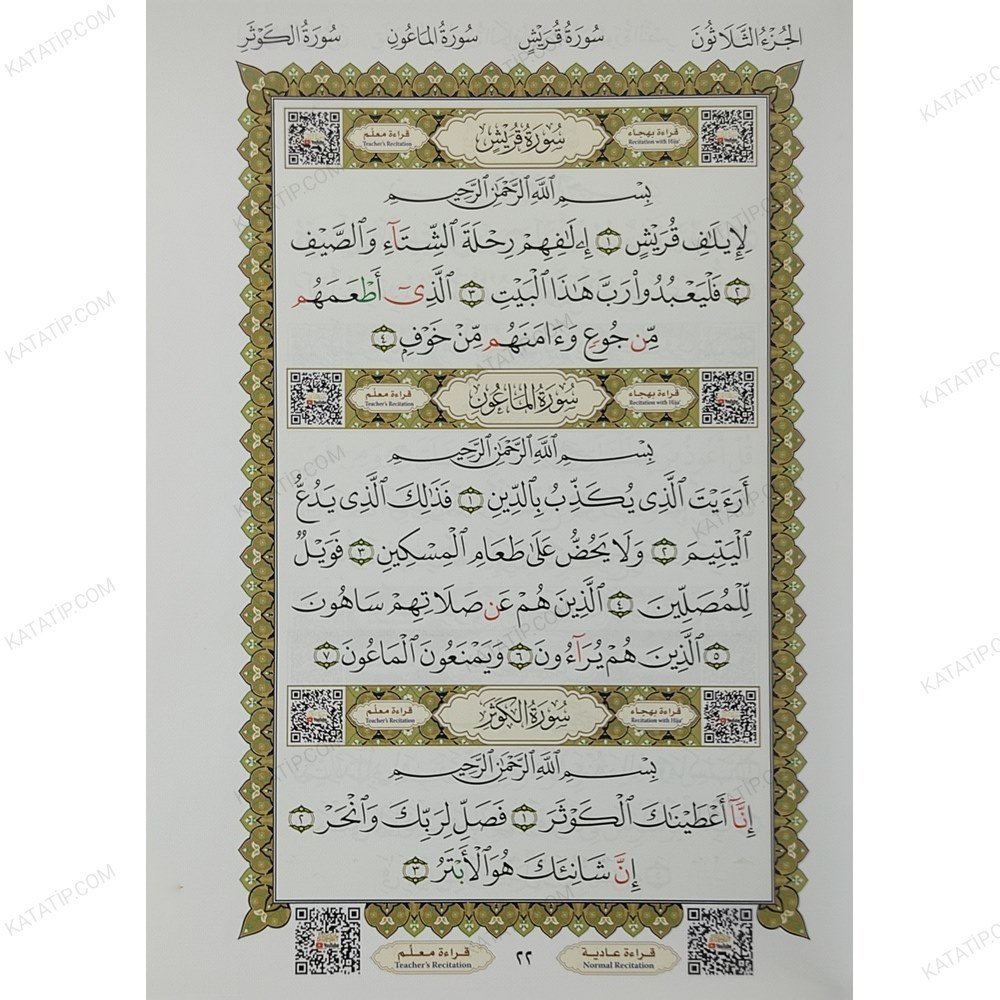 الجُزْءُ الثَّلَاثُونَ سُورَةُ قُرَيْشٍ سُورَةُ المَاعُونِ سُورَةُ الكَوْثَرِ
قراءة بهجاء Recitation with Hija' سُورَةُ قُرَيْشٍ قراءة معلّم Teacher's Recitation
بِسْمِ ٱللَّهِ ٱلرَّحْمَٰنِ ٱلرَّحِيمِ
لِإِيلَٰفِ قُرَيْشٍ ١ إِۦلَٰفِهِمْ رِحْلَةَ ٱلشِّتَآءِ وَٱلصَّيْفِ
٢ فَلْيَعْبُدُوا۟ رَبَّ هَٰذَا ٱلْبَيْتِ ٣ ٱلَّذِىٓ أَطْعَمَهُم
مِّن جُوعٍ وَءَامَنَهُم مِّنْ خَوْفٍۭ ٤
قراءة بهجاء Recitation with Hija' سُورَةُ المَاعُونِ قراءة معلّم Teacher's Recitation
بِسْمِ ٱللَّهِ ٱلرَّحْمَٰنِ ٱلرَّحِيمِ
أَرَءَيْتَ ٱلَّذِى يُكَذِّبُ بِٱلدِّينِ ١ فَذَٰلِكَ ٱلَّذِى يَدُعُّ
ٱلْيَتِيمَ ٢ وَلَا يَحُضُّ عَلَىٰ طَعَامِ ٱلْمِسْكِينِ ٣ فَوَيْلٌ
لِّلْمُصَلِّينَ ٤ ٱلَّذِينَ هُمْ عَن صَلَاتِهِمْ سَاهُونَ
٥ ٱلَّذِينَ هُمْ يُرَآءُونَ ٦ وَيَمْنَعُونَ ٱلْمَاعُونَ ٧
قراءة بهجاء Recitation with Hija' سُورَةُ الكَوْثَرِ قراءة معلّم Teacher's Recitation
بِسْمِ ٱللَّهِ ٱلرَّحْمَٰنِ ٱلرَّحِيمِ
إِنَّآ أَعْطَيْنَٰكَ ٱلْكَوْثَرَ ١ فَصَلِّ لِرَبِّكَ وَٱنْحَرْ ٢
إِنَّ شَانِئَكَ هُوَ ٱلْأَبْتَرُ ٣
قراءة عادية Normal Recitation ٢٢ قراءة معلّم Teacher's Recitation
KATATİP.COM